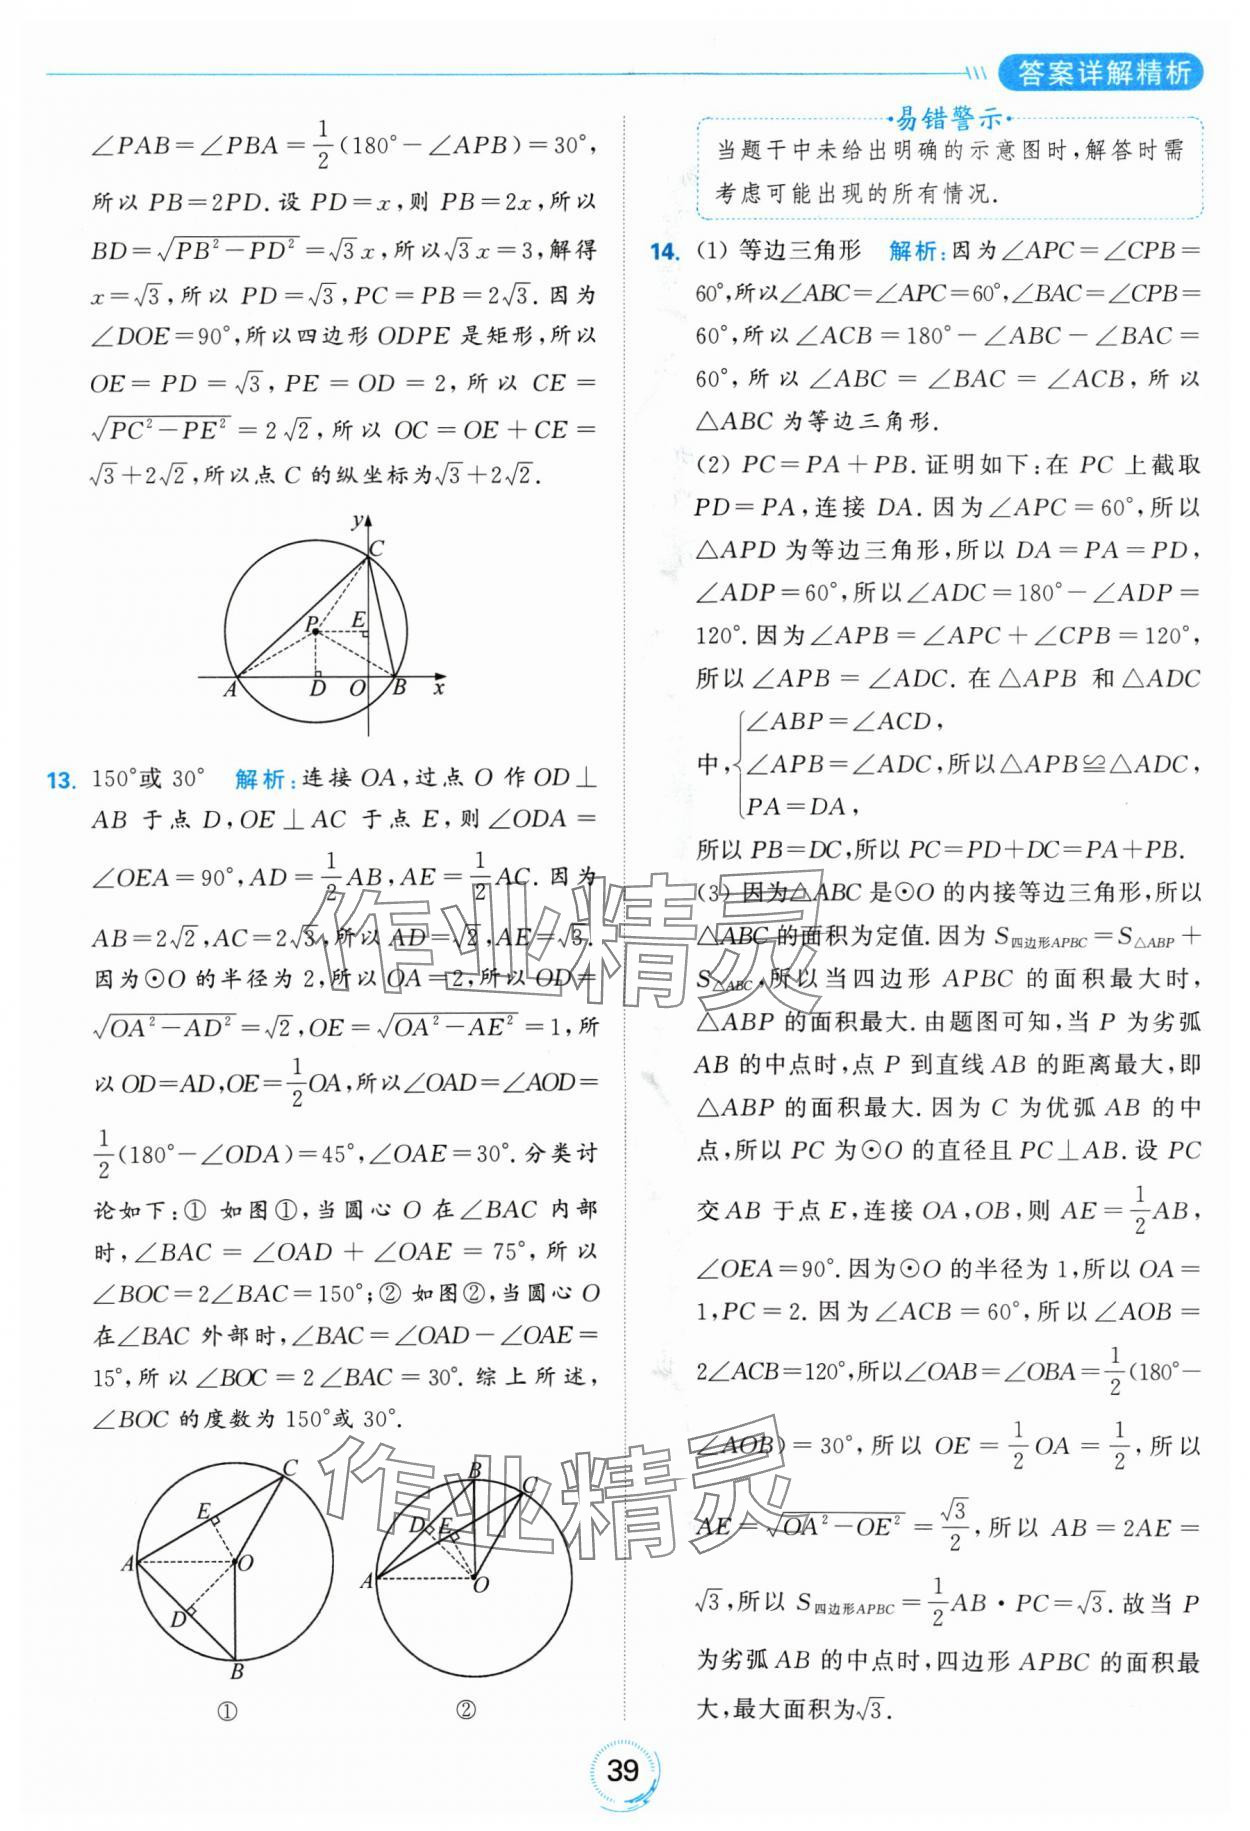 答案详解精析
∠PAB=∠PBA=1/2(180°-∠APB)=30°,
所以 PB=2PD.设 PD=x,则 PB=2x,所以
BD=√(PB²-PD²)=√3x,所以√3x=3,解得
x=√3,所以 PD=√3,PC=PB=2√3.因为
∠DOE=90°,所以四边形 ODPE 是矩形,所以
OE=PD=√3,PE=OD=2,所以 CE=
√(PC²-PE²)=2√2,所以 OC=OE+CE=
√3+2√2,所以点 C 的纵坐标为√3+2√2.
y
C
P E
A D O B x
13. 150°或 30° 解析:连接 OA,过点 O 作 OD⊥
AB 于点 D,OE⊥AC 于点 E,则∠ODA=
∠OEA=90°,AD=1/2AB,AE=1/2AC.因为
AB=2√2,AC=2√3,所以 AD=√2,AE=√3.
因为⊙O 的半径为 2,所以 OA=2,所以 OD=
√(OA²-AD²)=√2,OE=√(OA²-AE²)=1,所
以 OD=AD,OE=1/2OA,所以∠OAD=∠AOD=
1/2(180°-∠ODA)=45°,∠OAE=30°.分类讨
论如下:① 如图①,当圆心 O 在∠BAC 内部
时,∠BAC=∠OAD+∠OAE=75°,所以
∠BOC=2∠BAC=150°;② 如图②,当圆心 O
在∠BAC 外部时,∠BAC=∠OAD-∠OAE=
15°,所以∠BOC=2∠BAC=30°.综上所述,
∠BOC 的度数为 150°或 30°.
C
E
A O
D
B
①
B C
D E
A O
②
易错警示
当题干中未给出明确的示意图时,解答时需
考虑可能出现的所有情况.
14. (1) 等边三角形 解析:因为∠APC=∠CPB=
60°,所以∠ABC=∠APC=60°,∠BAC=∠CPB=
60°,所以∠ACB=180°-∠ABC-∠BAC=
60°,所以∠ABC=∠BAC=∠ACB,所以
△ABC 为等边三角形.
(2) PC=PA+PB.证明如下:在 PC 上截取
PD=PA,连接 DA.因为∠APC=60°,所以
△APD 为等边三角形,所以 DA=PA=PD,
∠ADP=60°,所以∠ADC=180°-∠ADP=
120°.因为∠APB=∠APC+∠CPB=120°,
所以∠APB=∠ADC.在△APB 和△ADC
∠ABP=∠ACD,
中,{∠APB=∠ADC,所以△APB≌△ADC,
PA=DA,
所以 PB=DC,所以 PC=PD+DC=PA+PB.
(3) 因为△ABC 是⊙O 的内接等边三角形,所以
△ABC 的面积为定值.因为 S四边形APBC=S△ABP+
S△ABC,所以当四边形 APBC 的面积最大时,
△ABP 的面积最大.由题图可知,当 P 为劣弧
AB 的中点时,点 P 到直线 AB 的距离最大,即
△ABP 的面积最大.因为 C 为优弧 AB 的中
点,所以 PC 为⊙O 的直径且 PC⊥AB.设 PC
交 AB 于点 E,连接 OA,OB,则 AE=1/2AB,
∠OEA=90°.因为⊙O 的半径为 1,所以 OA=
1,PC=2.因为∠ACB=60°,所以∠AOB=
2∠ACB=120°,所以∠OAB=∠OBA=1/2(180°-
∠AOB)=30°,所以 OE=1/2OA=1/2,所以
AE=√(OA²-OE²)=√3/2,所以 AB=2AE=
√3,所以 S四边形APBC=1/2AB·PC=√3.故当 P
为劣弧 AB 的中点时,四边形 APBC 的面积最
大,最大面积为√3.
作业精灵
作业精灵
39